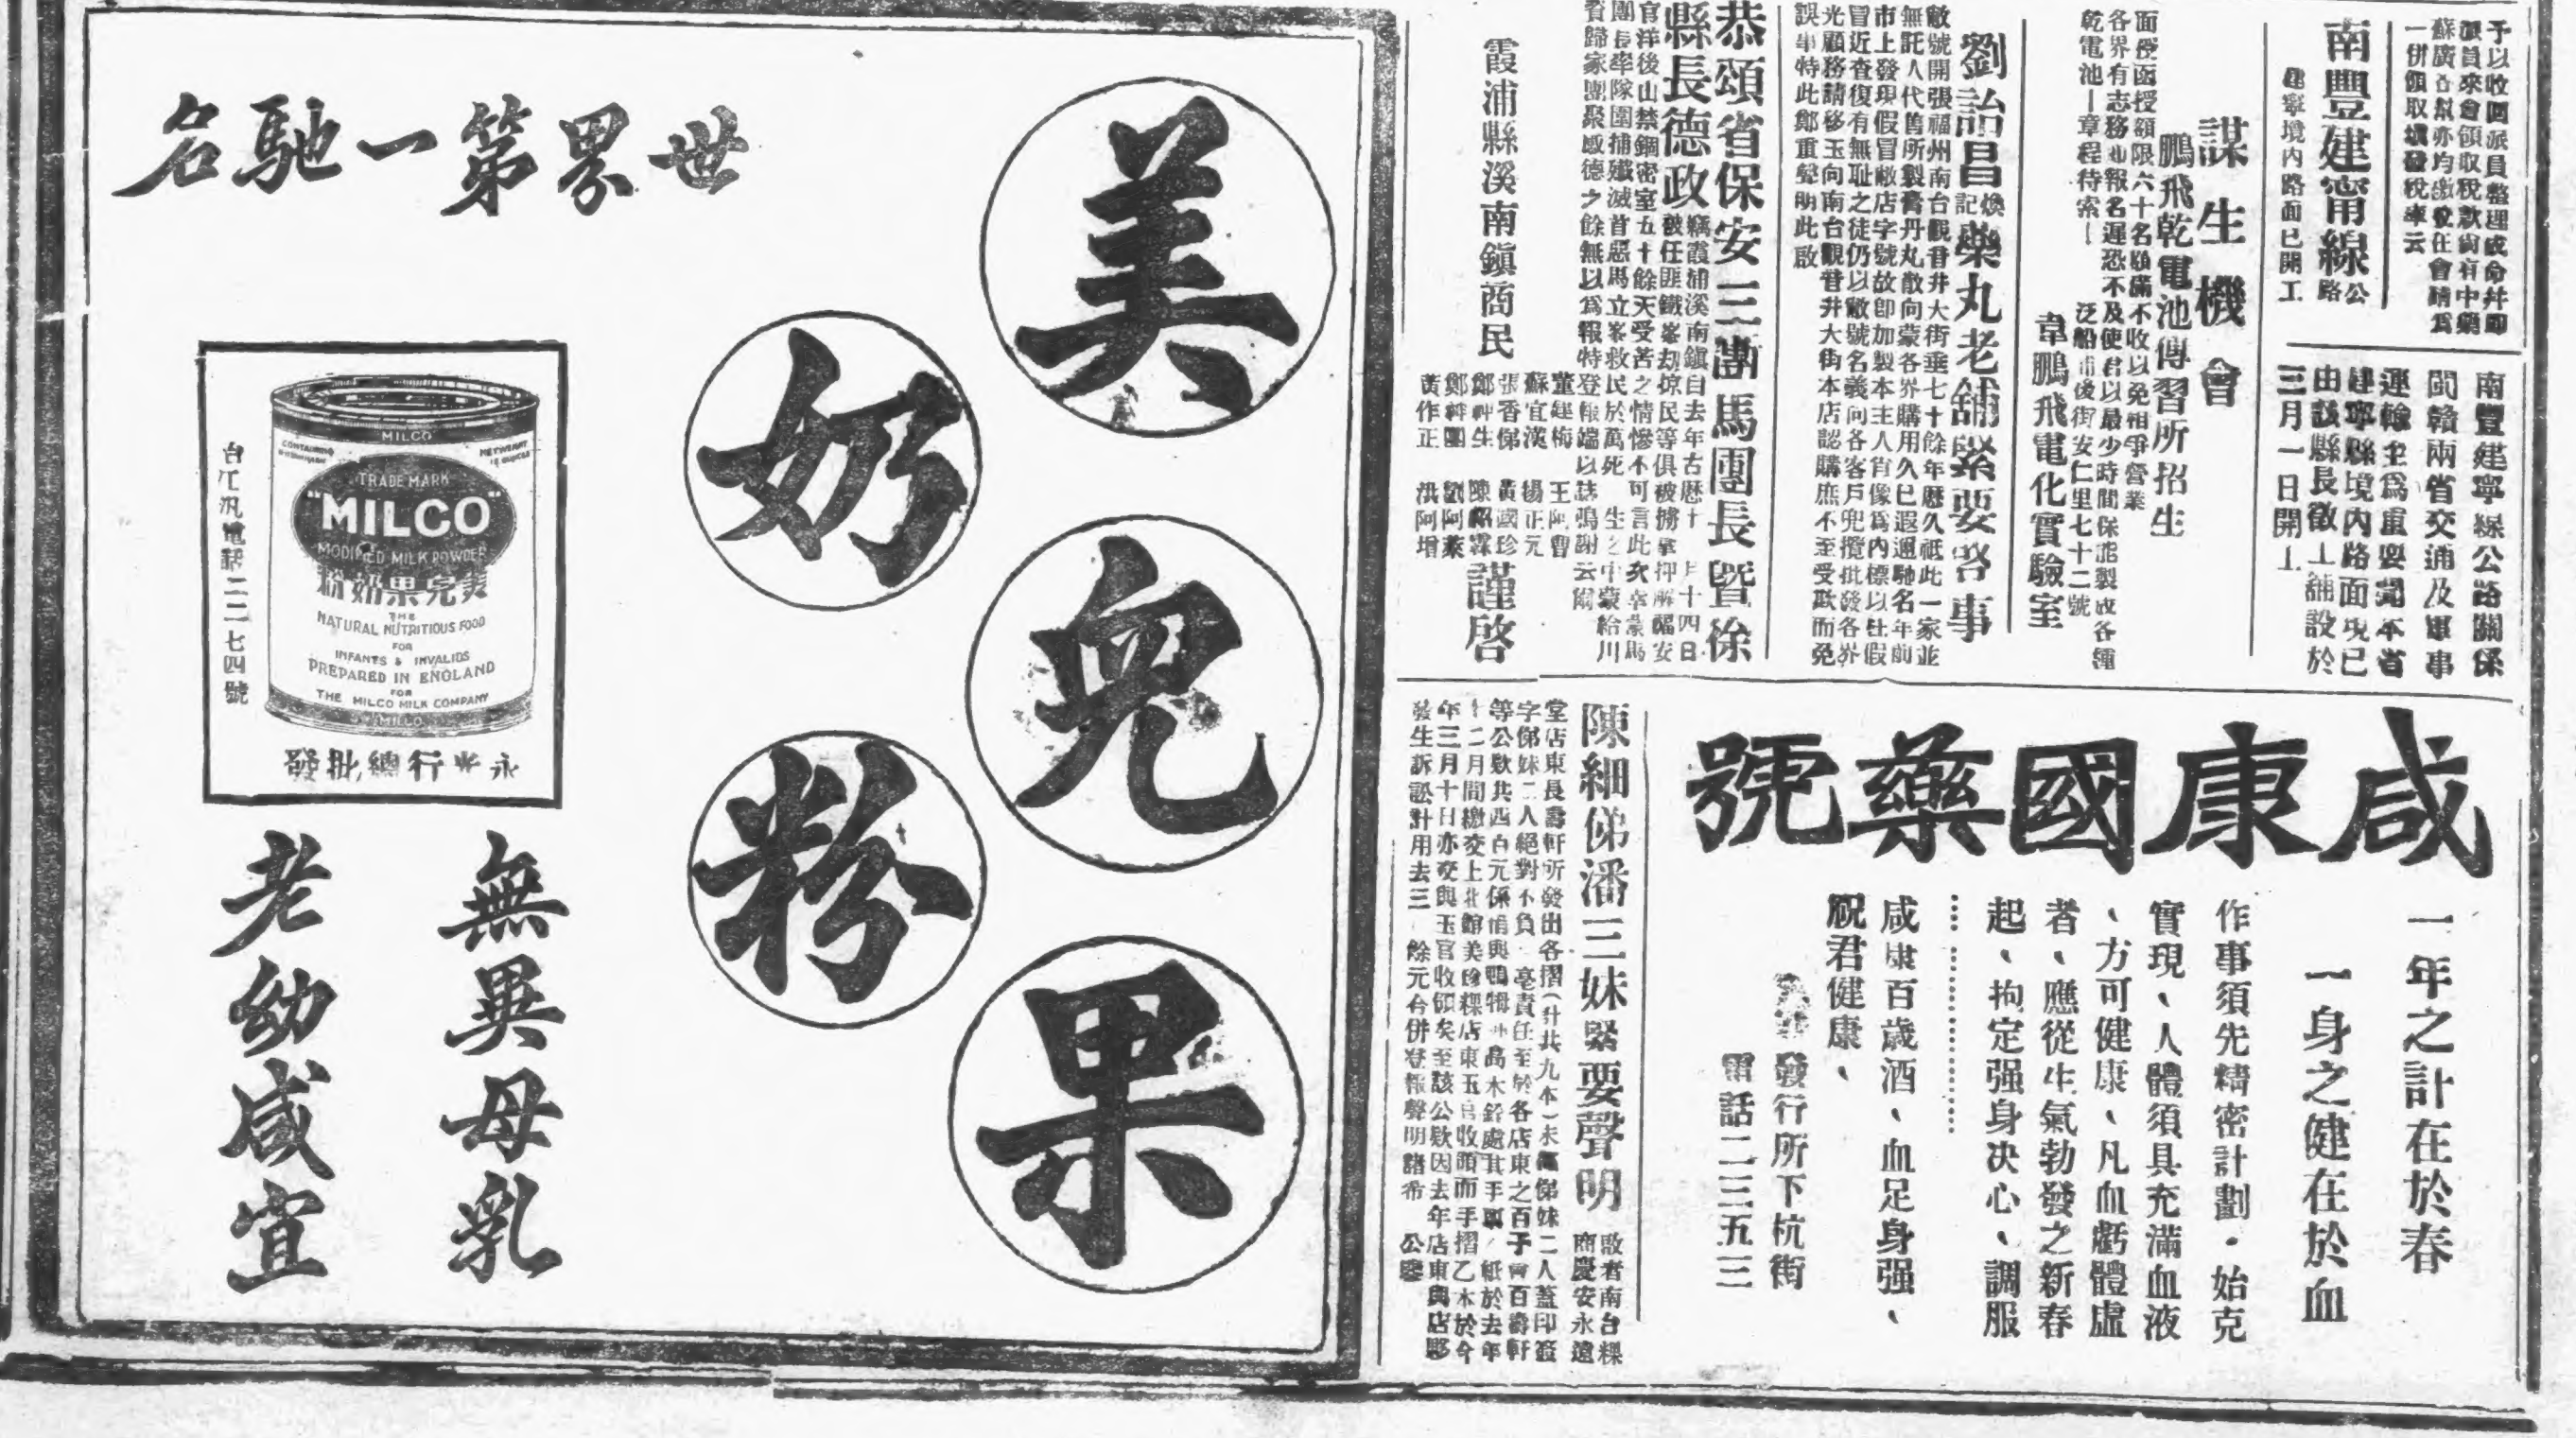 予以收回派員整理成命并即
派員來會領取稅款尚有中藥
蘇廣各幫亦均繳發往會請爲
一併領取填發稅率云
南豐建甯線公路
建寧境內路面已開工
南豐建寧線公路關係
閩贛兩省交通及軍事
運輸至爲重要聞本省
建寧縣境內路面現已
由該縣長徵工舖設於
三月一日開工
謀生機會
鵬飛乾電池傳習所招生
面授函授額限六十名額滿不收以免相爭營業
各界有志務祉報名遲恐不及使君以最少時間保能製成各種
乾電池—章程待索—
泛船浦後街安仁里七十二號
韋鵬飛電化實驗室
劉詒昌煥記藥丸老舖緊要啓事
敝號開張福州南台觀音井大街垂七十餘年歷久祇此一家並
無託人代售所製膏丹丸散向蒙各界購用久已遐邇馳名年前
市上發現假冒敝店字號故卽加製本主人肖像爲內標以杜假
冒近查復有無耻之徒仍以敝號名義向各客戶兜攬批發各界
光顧務請移玉向南台觀音井大街本店認購庶不至受欺而免
誤事特此鄭重聲明此啟
恭頌省保安三團馬團長暨徐
縣長德政
竊霞浦溪南鎭自去年古歷十月十四日
被任匪鐵峯刧掠民等俱被擄拿押解福安
官洋後山禁錮密室五十餘天受苦之情慘不可言此次幸蒙馬
團長率隊圍捕殲滅首惡馬立峯救民於萬死一生之中蒙給川
資歸家團聚感德之餘無以爲報特登報端以誌鳴謝云爾
霞浦縣溪南鎭商民
董建梅
蘇宜漢
張香俤
鄭祥生
鄭祥團
黃作正
王阿曾
楊正元
黃國珍
陳昭霖
劉阿萊
洪阿增
謹啓
咸康國藥號
一年之計在於春
一身之健在於血
作事須先精密計劃·始克
實現、人體須具充滿血液
、方可健康、凡血虧體虛
者、應從生氣勃發之新春
起、拘定强身决心、調服
咸康百歲酒、血足身强、
祝君健康、
發行所下杭街
電話二三五三
陳細俤潘三妹緊要聲明
啟者南台粿
商慶安永遠
堂店東長壽軒所發出各摺(計共九本)未屬俤妹二人蓋印簽
字俤妹二人絕對不負一毫責任至於各店東之百子會百壽軒
等公欵共四百元係
十二月間繳交上北館美珍粿店東玉官收領而手摺乙本於今
年三月十日亦交與玉官收領矣至該公欵因去年店東與店夥
發生訴訟計用去三餘元合併登報聲明諸希
公鑒
世界第一馳名
美兒果
奶粉
MILCO
CONTAINING
NET WEIGHT
TRADE MARK
"MILCO"
MODIFIED MILK POWDER
美兒果奶粉
THE
NATURAL NUTRITIOUS FOOD
FOR
INFANTS & INVALIDS
PREPARED IN ENGLAND
FOR
THE MILCO MILK COMPANY
MILCO
永光行總批發
台江汎電話二二七四號
無異母乳
老幼咸宜